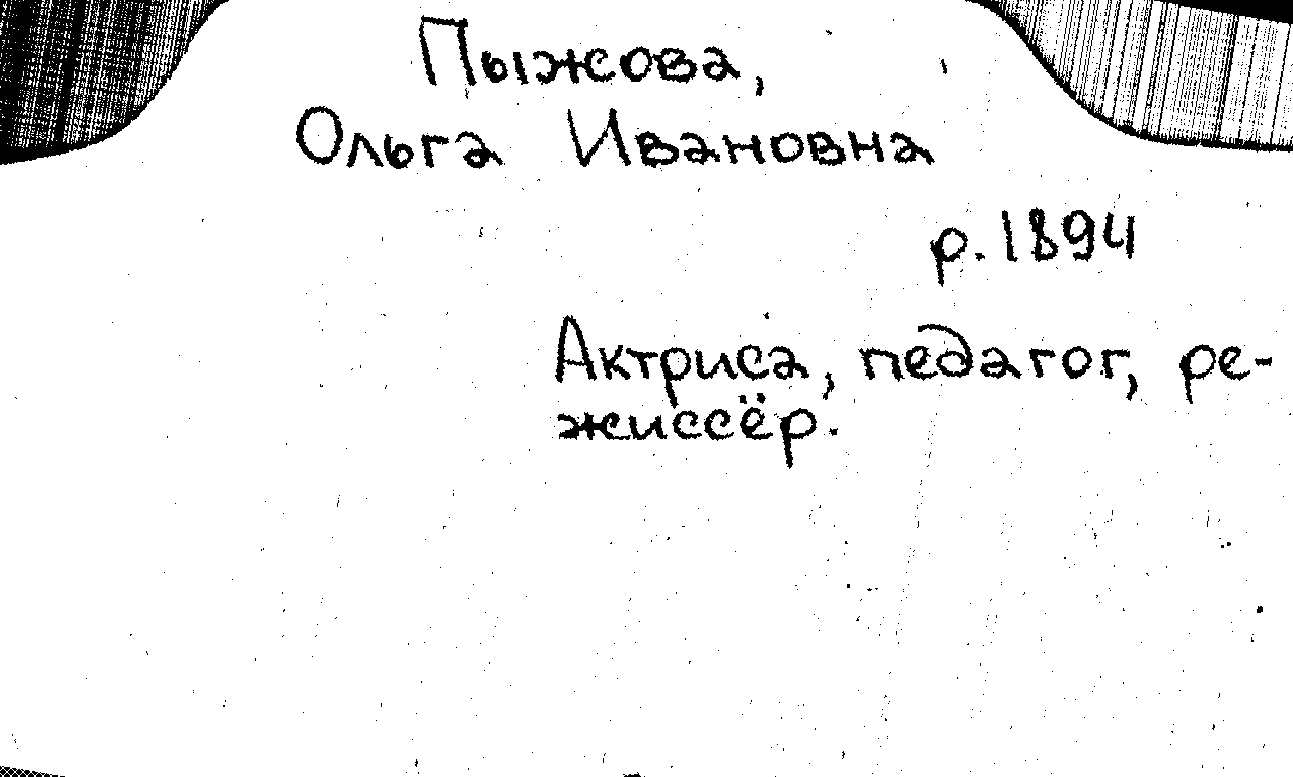 Пыжова,
Ольга Ивановна
р. 1894
Актриса, педагог, ре-
жиссёр.